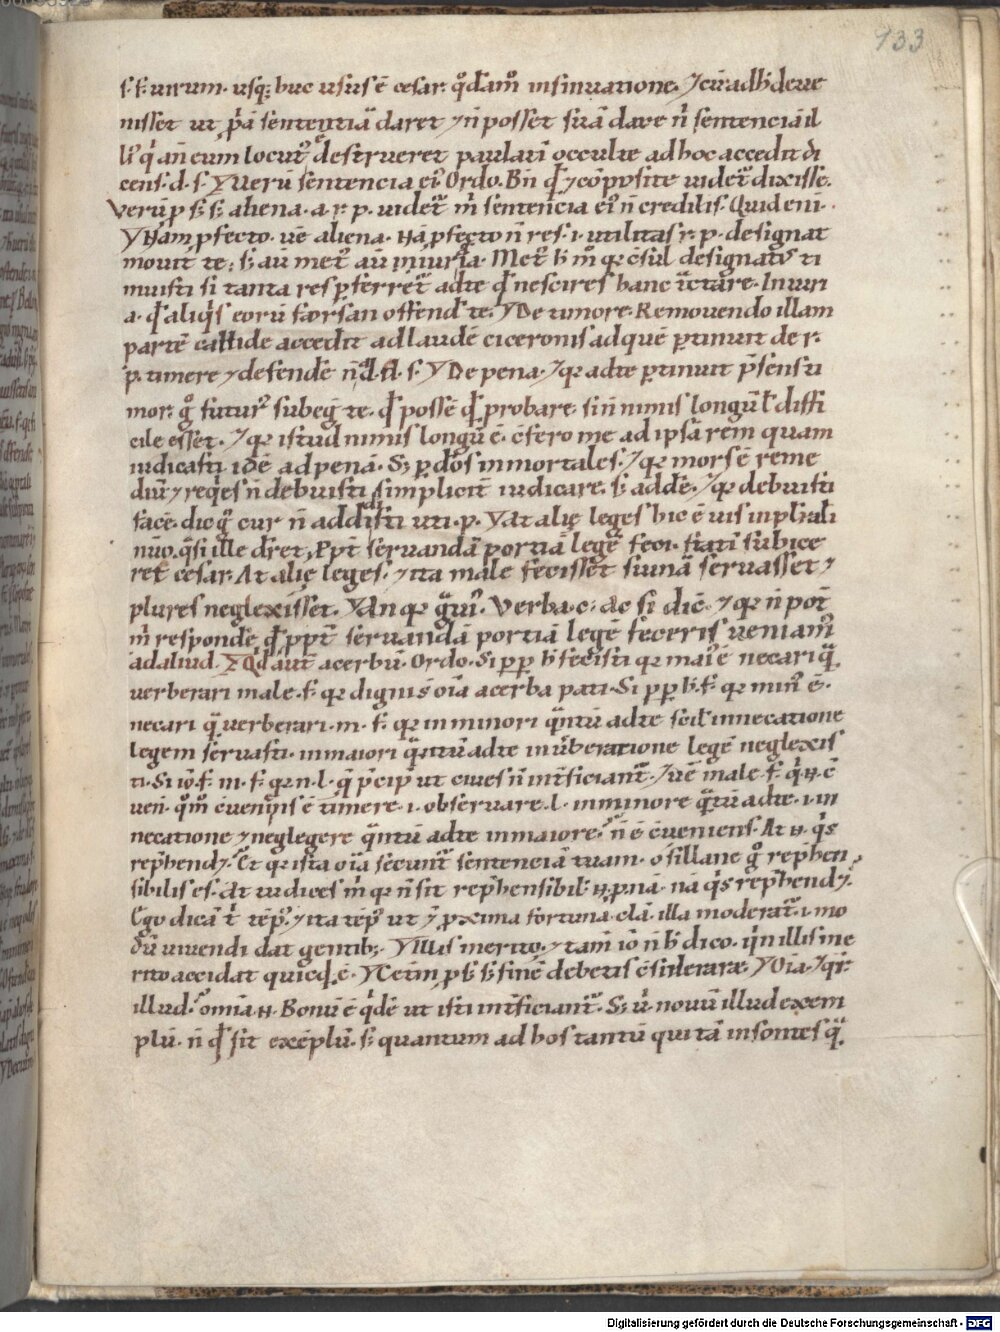 133
s. s. uirum. usq; huc usus ē cesar. q̊dam̊ insinuatione. ⁊ cū ad hđ deue
nisset ut p̄ā sententiā daret ⁊ ñ posset suā dare ñ sentenciā il
li' q̇ añ eum locut᷒ destrueret paulatī occulte ad hoc accedit di
cens. d. s. Y Uerū sentencia ei᷒. Ordo. Bñ ꝙ ⁊ cōposite uidet᷒ dixisse.
Verū p s. s. aliena. a. r. p. uidet᷒ m̄ sentencia ei᷒ ñ credilis. Quid eni.
Y Nam pfecto. uē aliena. Nā pfecto ñ res. i. utilitas r. p. designat
mouit te; s; au met᷒ au iniuria. Met᷒ h m̊ qr c̄sul designat᷒ ti
muisti si tanta res pferret᷒ ad te ꝙ nescires hanc ūctare. Iniuri
a. ꝙ aliq̇s eorū forsan offend̄ te. Y De timore. Removendo illam
partē callide accedit ad laudē ciceronis ad quē ptinuit de r.
p. timere ⁊ defendē s. Y De pena. ⁊ qr ad te ptinuit p̄sens ti
mor. g̊ futur᷒ subeg̅ te. ꝙ possē ꝙ probare. si ñ nimis longū t̄ diffi
cile esset. ⁊ qr istud nimis longū ē. c̄fero me ad ipsā rem quam
iudicasti idē ad penā. S; p dōs inmortales. ⁊ qr mors ē reme
diū ⁊ reqes ñ debuisti simplicit̄ iudicare. s; addē. ⁊ qr debuisti
facē. dic g̊ cur ñ addisti uti. p. Y At alię leges hic ē uis in plali
nūo. q̇si ille dret, Ppt̄ servandā portiā legē feci. statī subice
ret cesar. At alię leges. ⁊ ita male fecisset si unā servasset ⁊
plures neglexisset. Y An qr g̊ui᷒. Verba. c. ac si dic̄. ⁊ qr ñ pot̄
m̄ respondē ꝙ ppt̄ servandā portiā legē feceris ueniam᷒
ad aliud. Y Qd aut̄ acerbū. Ordo. Si p p h fecisti qr mai᷒ ē necari q̊
verberari male. f. qr dignū ē oīa acerba pati. Si p p h. f. qr min᷒ ē.
necari q̊ verberari. m. f. qr in minori q̊ntū ad te scil innecatione
legem servasti. in maiori q̊ntū ad te in ūberatione legē neglexis
ti. Si iō. f. m. f. qr. n. l. q̇ p̄cip̄ ut cives ñ int̄ficiant᷒. ⁊ uē male. f. q̇. n. ē
ueñ. q̊m c̄veniens ē timere. i. observare. l. in minore q̊ntū ad te. i. in
necatione ⁊ neglegere q̊ntū ad te in maiore. ñ ē c̄veniens. At n. q̇s
rep̄hend;. Et qr ista oīa secunt᷒ sentenciā tuam. o sillane g̊ rep̄hen
sibilis es. At iudices m̄ qr ñ sit rep̄hensibil. n. p. nā. nā q̇s rep̄hend;.
Ego dicā t̄ tēp᷒. ⁊ ita tēp᷒ ut ē pxima fortuna. cla. illa moderat᷒. i. mo
dū vivendi dat gentib;. Y Illis merito. ⁊ tam̄ iō ñ h dico. q̇n illis me
rito accidat quicq̊. ē. Y Cetm̄. p s. h sinē debetis c̄siderare. Y Oīa. ⁊ qr.
illud. omīa. n. Bonū ē q̇dē ut isti int̄ficiant᷒. S; ū. novū illud exem
plū. ñ ꝙ sit exēplū. s; quantum ad hos tantū qui tā insontes q̊.
Digitalisierung gefördert durch die Deutsche Forschungsgemeinschaft - DFG